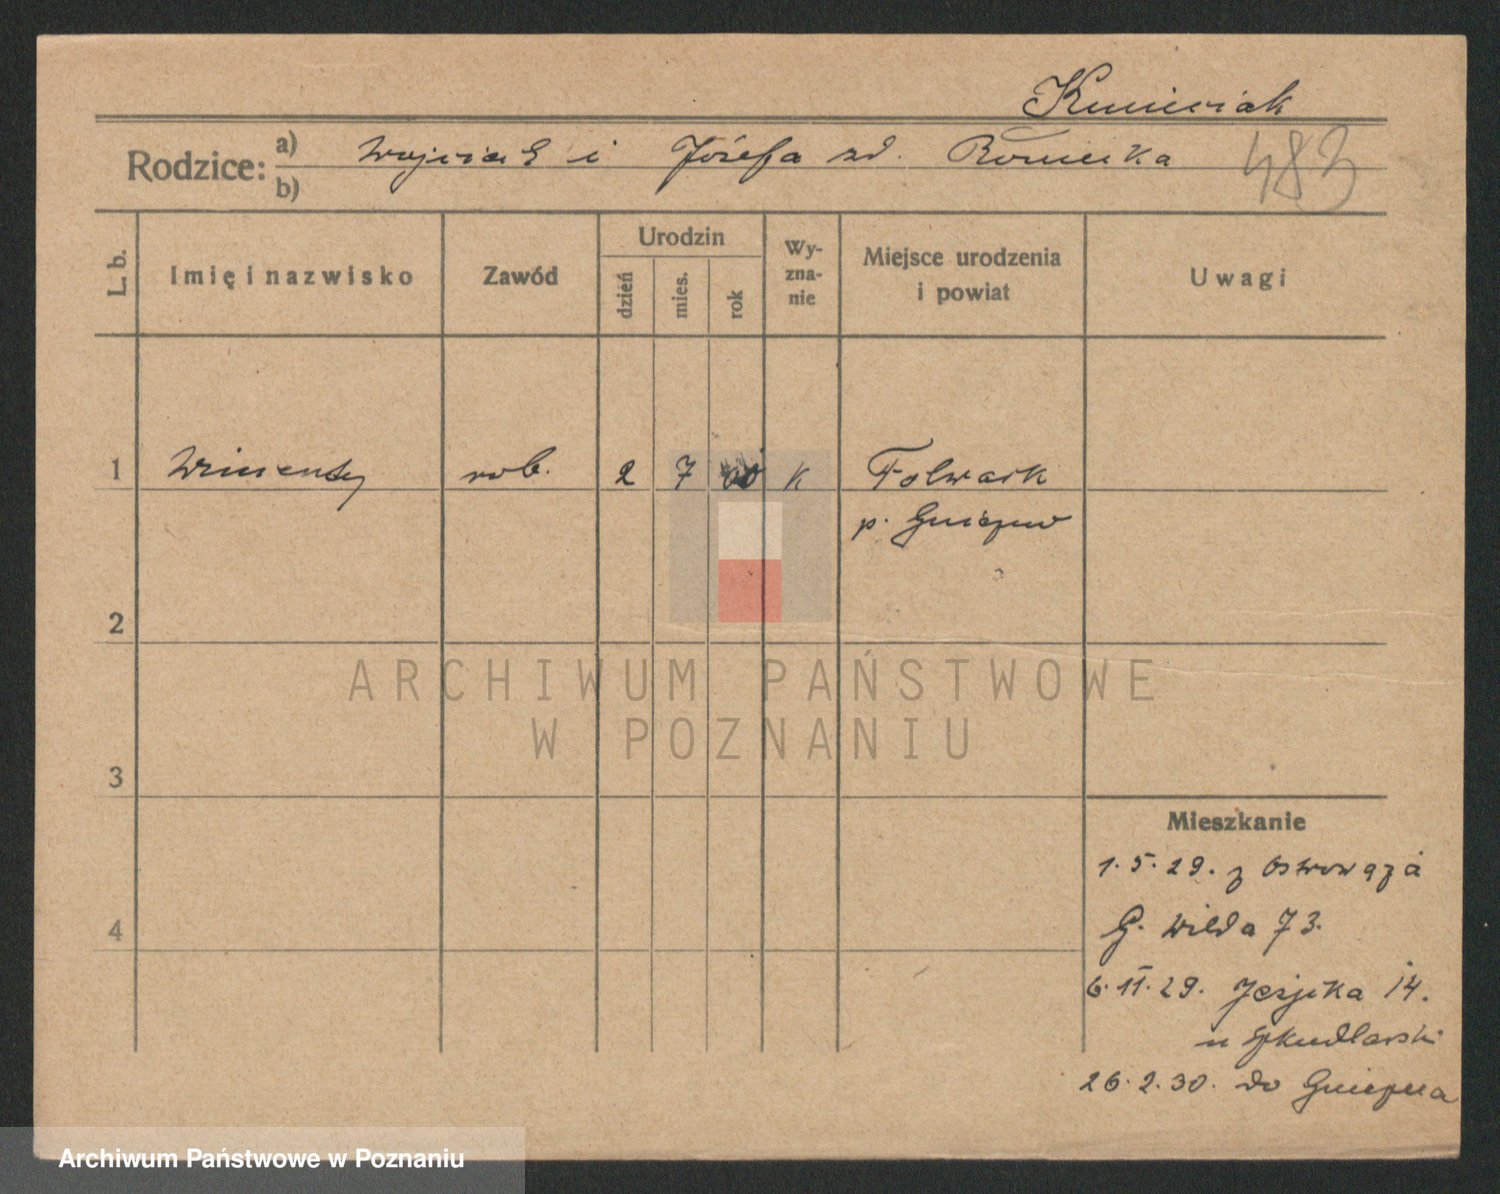 Kmieciak
Rodzice: a) b)
Wojciech i Józefa zd. Roniecka
483
L. b.
Imię i nazwisko
Zawód
Urodzin
dzień
mies.
rok
Wy-
zna-
nie
Miejsce urodzenia
i powiat
Uwagi
1
Wincenty
rob.
2
7
k
Folwark
p. Gniezno
2
ARCHIWUM PAŃSTWOWE
W POZNANIU
3
4
Mieszkanie
1.5.29. z
G. Wilda 73.
6.11.29. 14.
u Szkudlarski
26.2.30. do Gniezna
Archiwum Państwowe w Poznaniu